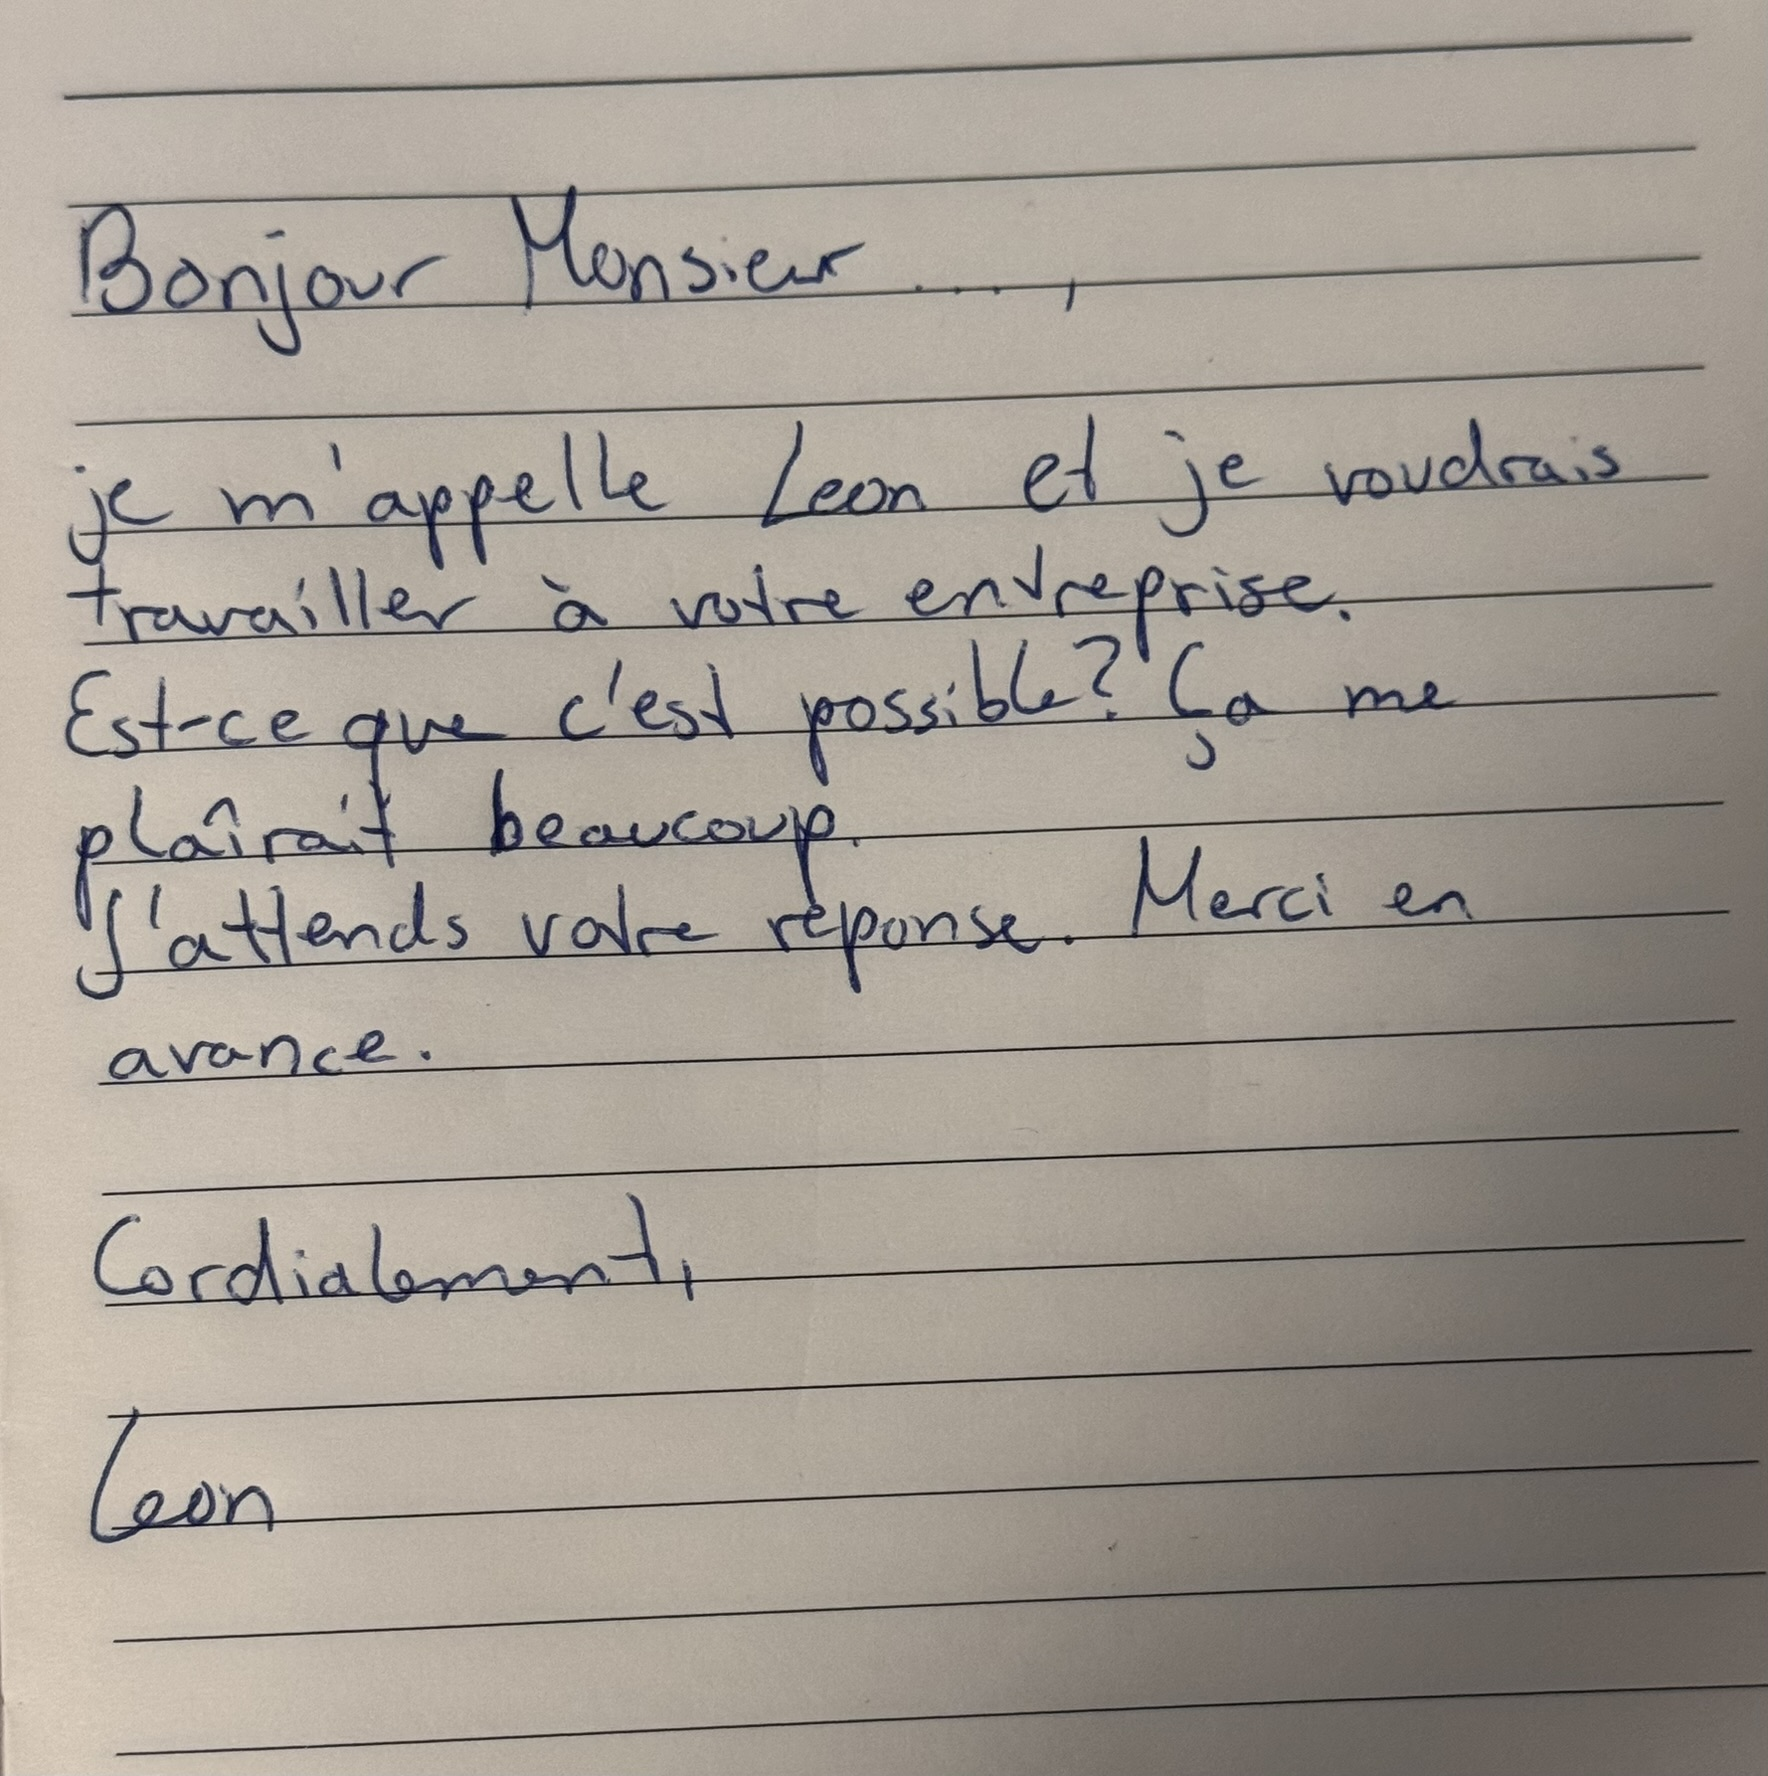 Bonjour Monsieur ....,
je m'appelle Leon et je voudrais
travailler à votre entreprise.
Est-ce que c'est possible? Ça me
plaîrait beaucoup.
J'attends votre réponse. Merci en
avance.
Cordialement,
Leon